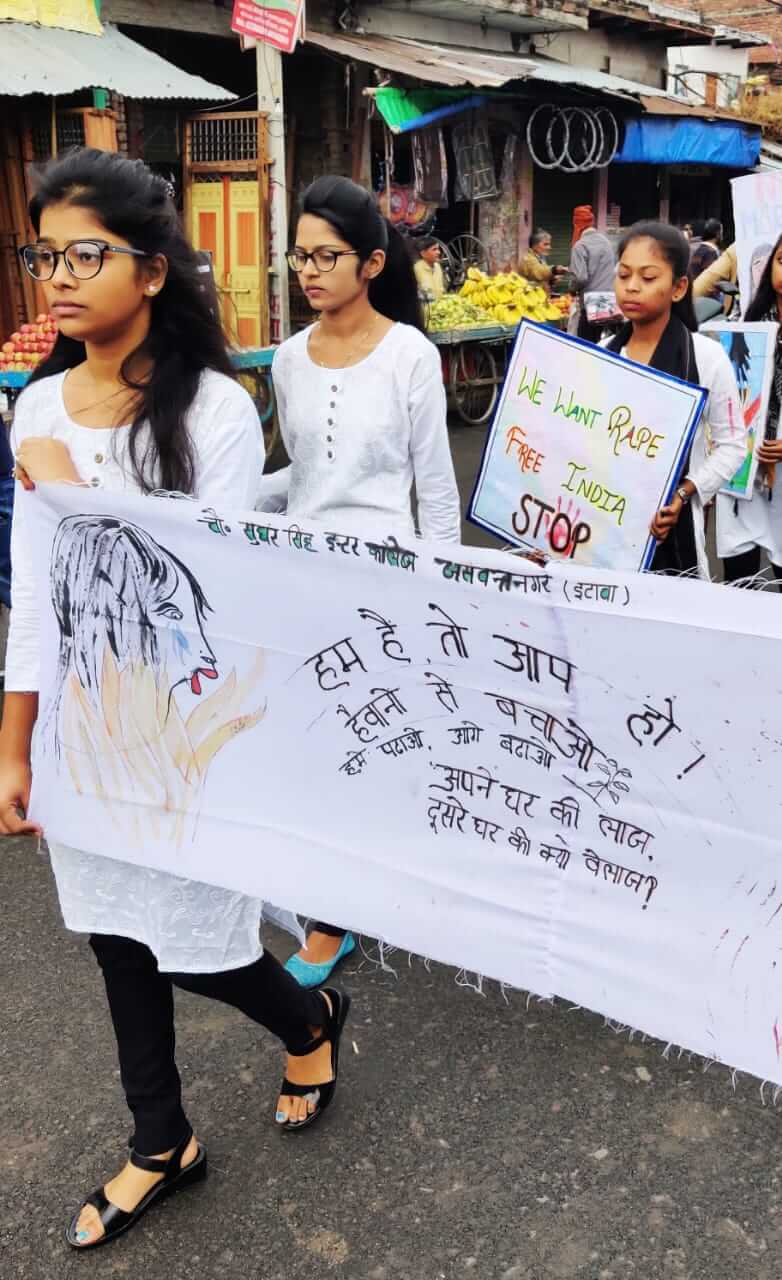 WE WANT RAPE
FREE INDIA
STOP
चौ० सुघर सिंह इन्टर कालेज जसवन्तनगर (इटावा)
हम है तो आप हो !
हैवानो से बचाओ
हमे पढाओ, आगे बढाओ
अपने घर की लाज,
दूसरे घर की क्यो बेलाज?